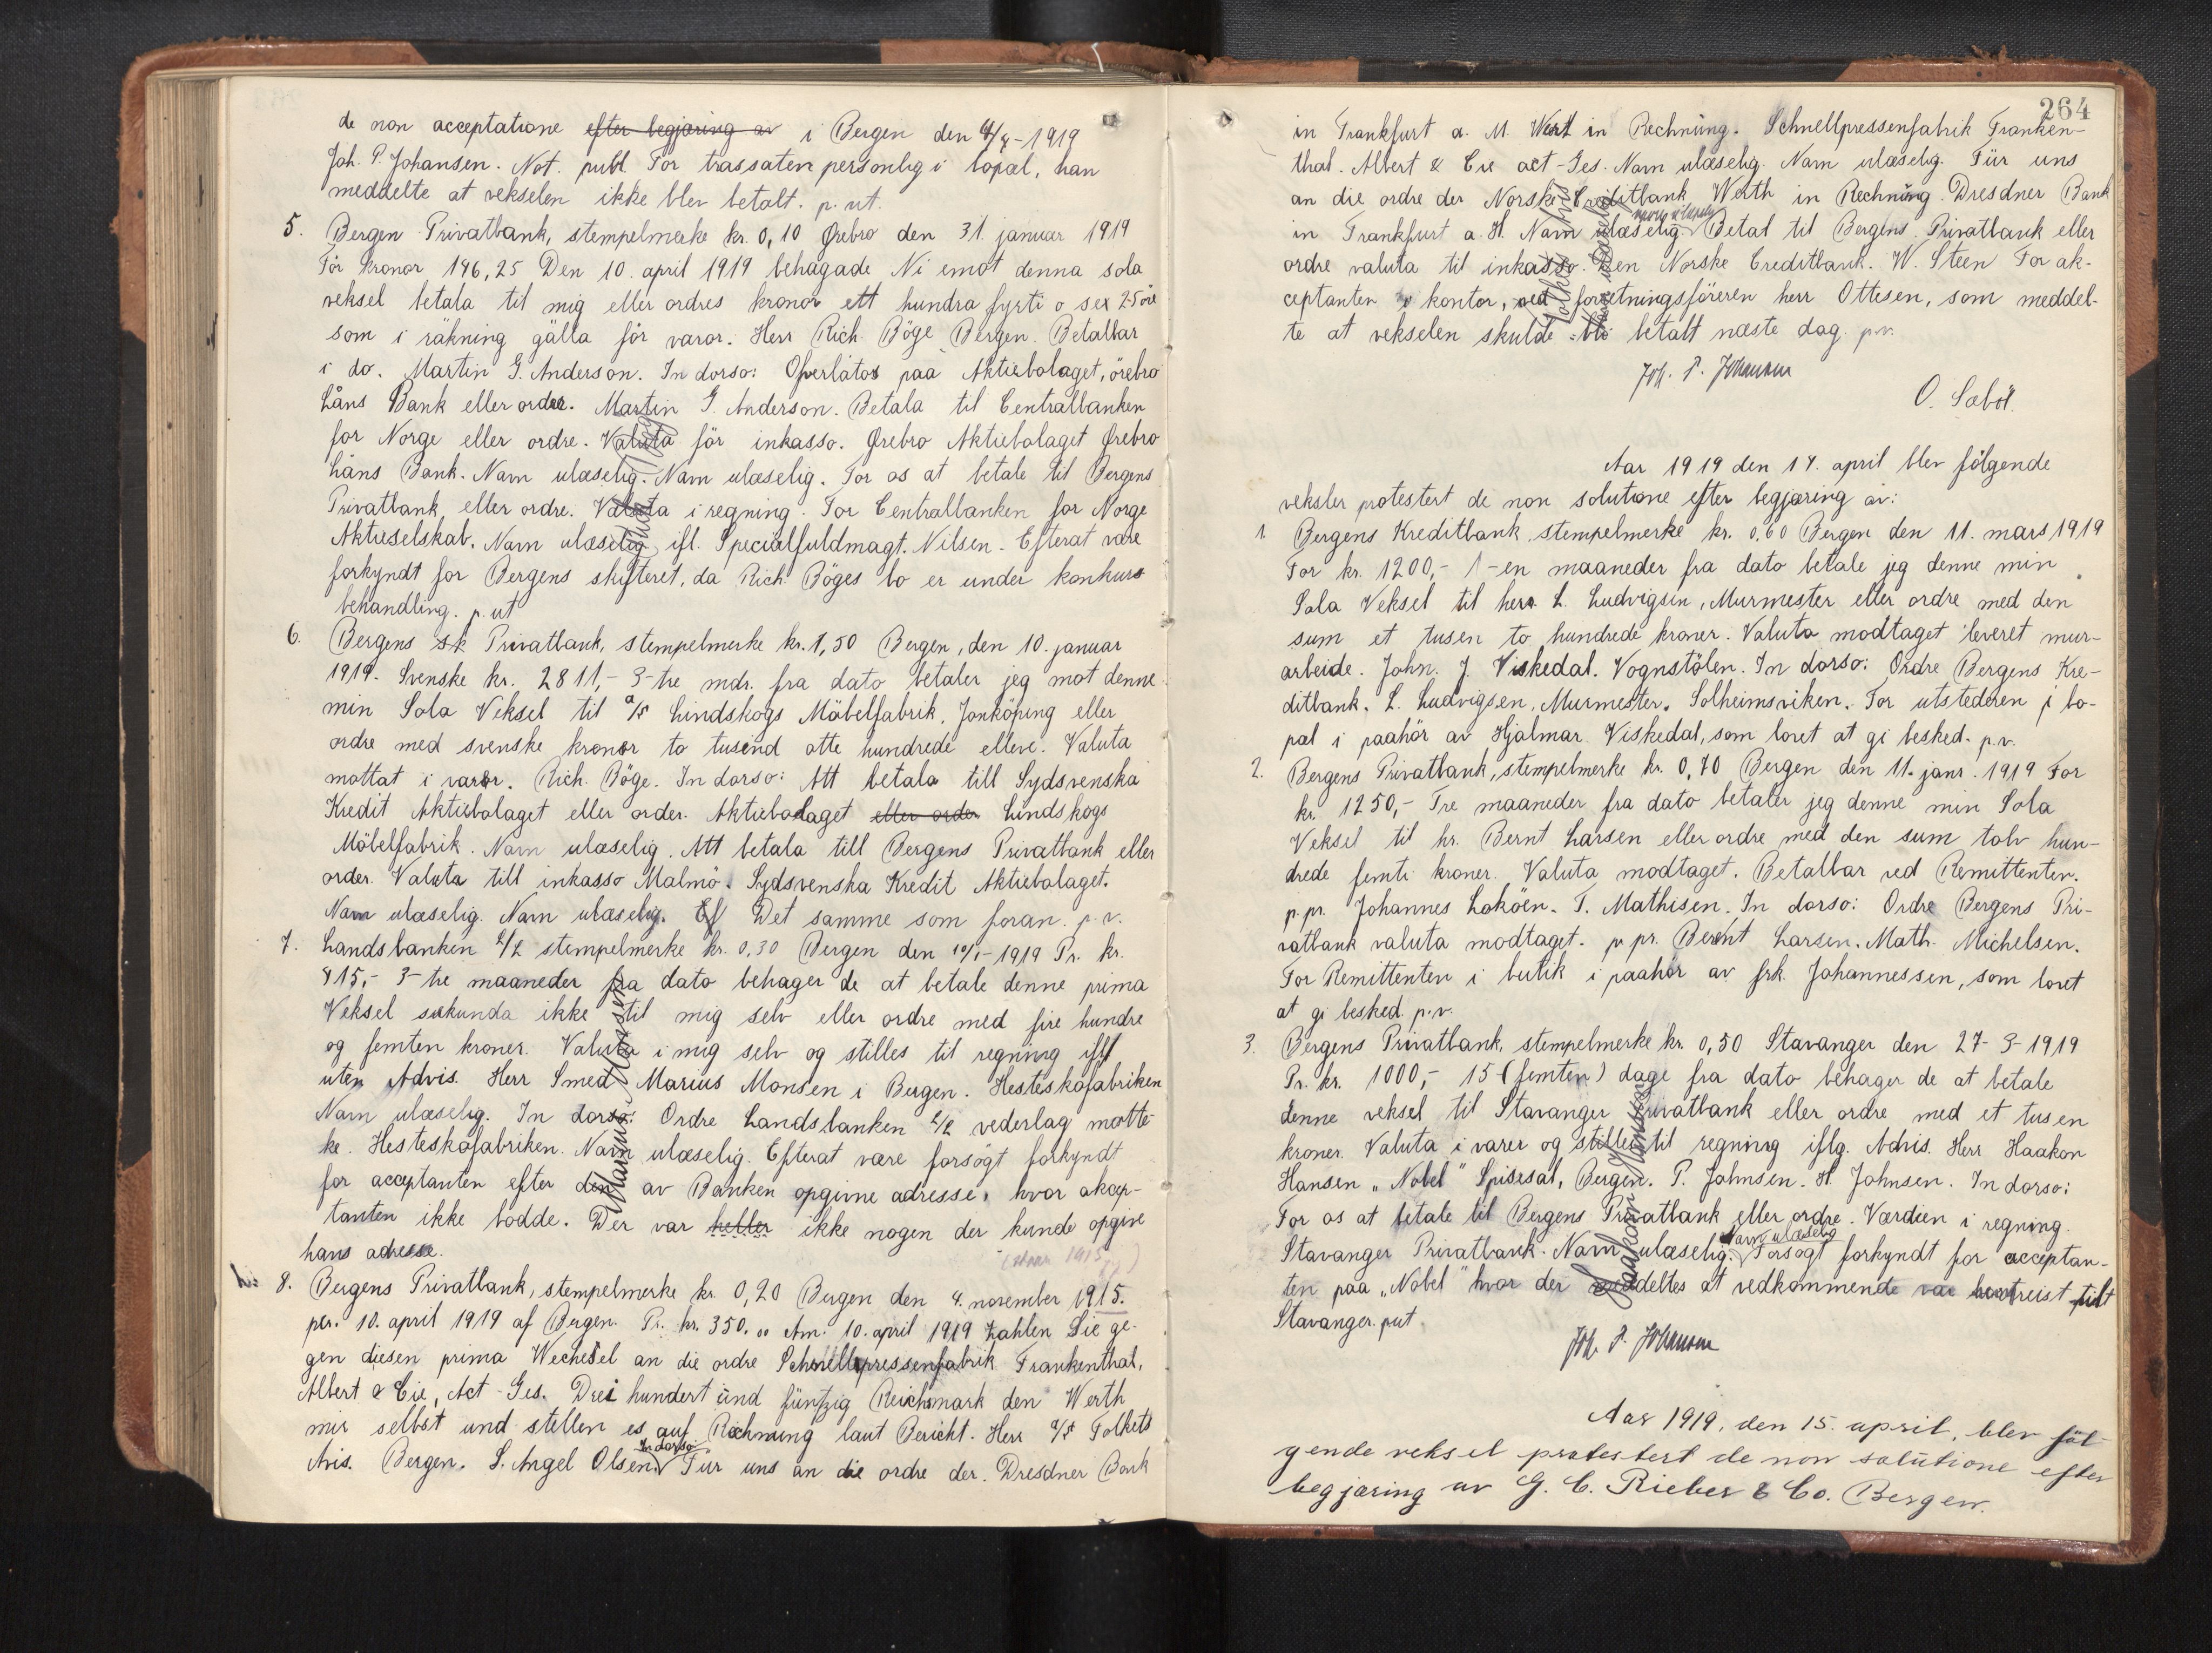 de non acceptatione efter begjæring av i Bergen den 4/4-1919
Joh. P. Johansen. Not. publ For trassaten personlig i bopæl, han
meddelte at vekselen ikke blev betalt. p. ut.
5. Bergen Privatbank, stempelmerke kr. 0,10 Ørebro den 31. januar 1919
För kronor 146,25 Den 10. april 1919 behagade Ni emot denna sola
veksel betala til mig eller ordres kronor ett hundra fyrti o sex 25 öre
som i räkning gälla för varor. Herr Rich. Böge Bergen. Betalbar
i do. Martin G. Anderson. In dorso: Overlåtos paa Aktiebolaget, örebro
Låns Bank eller order. Martin G. Anderson. Betala til Centralbanken
for Norge eller ordre. Valuta för inkasso. Ørebro Aktiebolaget Ørebro
Låns Bank. Navn ulæselig. Navn ulæselig. For os at betale til Bergens
Privatbank, eller ordre. Valuta i regning. For Centralbanken for Norge
Aktieselskab. Navn ulæselig ifl. Specialfuldmagt. Nilsen. Efterat være
forkyndt for Bergens skifteret, da Rich. Böges bo er under konkurs
behandling. p. ut
6. Bergens sk Privatbank, stempelmerke kr. 1,50 Bergen, den 10. januar
1919. Svenske kr. 2811,- 3-tre mdr. fra dato betaler jeg mot denne
min Sola Veksel til a/s Lindskogs Möbelfabrik, Jonköping eller
ordre med svenske kronor to tusend otte hundrede elleve. Valuta
mottat i varor. Rich. Böge. In dorso: Att betala till Sydsvenska
Kredit Aktiebolaget eller order. Aktiebolaget eller order Lindskogs
Möbelfabrik. Navn ulæselig. Att betala till Bergens Privatbank eller
order. Valuta till inkasso Malmö. Sydsvenska Kredit Aktiebolaget.
Navn ulæselig. Navn ulæselig. Ef Det samme som foran. p.v.
7. Landsbanken a/l stempelmerke kr. 0,30 Bergen den 10/1-1919 Pr. kr.
415,- 3-tre maaneder fra dato behager de at betale denne prima
Veksel sekunda ikke til mig selv eller ordre med fire hundre
og femten kroner. Valuta i mig selv og stilles til regning iflf
uten Advis. Herr Smed Marius Monsen i Bergen. Hesteskofabriken
Navn ulæselig. In dorso: Ordre Landsbanken a/l vederlag motte-
ke. Hesteskofabriken. Navn ulæselig. Efterat være forsøgt forkyndt
for acceptanten efter den av Banken opgivne adresse, hvor akcep-
tanten ikke bodde. Der var heller ikke nogen der kunde opgive
hans adresse.
8. Bergens Privatbank, stempelmerke kr. 0,20 Bergen den 4. november 1915.
per. 10. april 1919 af Bergen. Pr. kr. 350.00 Am. 10. april 1919 zahlen Sie ge-
gen diesen prima Wechesel an die ordre Schnellpressenfabrik Frankenthal,
Albert & Cie, Act-Ges. Drei hundert und fünfzig Reichsmark den Werth
mir selbst und stellen es auf Rechnung laut Bericht. Herr a/s Folkets
In dorso:
Avis. Bergen. S. Angel Olsen. Für uns an die ordre der. Dresdner Bank
264
in Frankfurt a. M. Wert in Rechnung. Schnellpressenfabrik Franken-
thal. Albert & Cie act-Ges. Navn ulæselig. Navn ulæselig. Für uns
an die ordre der Norske Creditbank Werth in Rechnung. Dresdner Bank
navn ulæselig
in Frankfurt a. M. Navn ulæselig. Betal til Bergens Privatbank eller
ordre valuta til inkasso. Den Norske Creditbank. W. Steen For ak-
ceptanten i kontor, ved forretningsföreren herr Ottesen, som meddel-
te at vekselen skulde bli betalt næste dag. p.v.
Joh. P. Johansen
O. Sæböl.
Aar 1919 den 14. april blev fölgende
veksler protestert de non solutione efter begjæring av:
1. Bergens Kreditbank, stempelmerke kr. 0,60 Bergen den 11. mars 1919
For kr. 1200,- 1-en maaneder fra dato betale jeg denne min
Sola Veksel til herr L. Ludvigsen, Murmester eller ordre med den
sum et tusen to hundrede kroner. Valuta modtaget leveret mur-
arbeide. John. J. Viskedal. Vognstölen. In dorso: Ordre Bergens Kre-
ditbank. L. Ludvigsen, Murmester. Solheimsviken. For utstederen i bo-
pæl i paahör av Hjalmar Viskedal, som lovet at gi besked. p.v.
2. Bergens Privatbank, stempelmerke kr. 0,70 Bergen den 11. janr. 1919 For
kr. 1250,- Tre maaneder fra dato betaler jeg denne min Sola
Veksel til hr. Bernt Larsen eller ordre med den sum tolv hun-
drede femti kroner. Valuta modtaget. Betalbar ved Remittenten.
p.pr. Johannes Loköen. T. Mathisen. In dorso: Ordre Bergens Pri-
vatbank valuta modtaget. p pr. Bernt Larsen. Math. Michelsen.
For Remittenten i butik i paahör av frk. Johannessen, som lovet
at gi besked. p.v.
3. Bergens Privatbank, stempelmerke kr. 0,50 Stavanger den 27-3-1919
Pr. kr. 1000,- 15 (femten) dage fra dato behager de at betale
denne veksel til Stavanger Privatbank eller ordre med et tusen
kroner. Valuta i varer og stilles til regning iflg. Advis. Herr Haakon
Hansen „Nobel" Spisesal, Bergen. P. Johnsen. H. Johnsen. In dorso:
For os at betale til Bergens Privatbank eller ordre. Værdien i regning.
Navn ulæselig
Stavanger Privatbank. Navn ulæselig. Forsøgt forkyndt for acceptan-
ten paa „Nobel" hvor der meddeltes at vedkommende var bortreist til
Stavanger. p.ut.
Joh. P. Johansen
Aar 1919, den 15. april, blev föl-
gende veksel protestert de non solutione efter
begjæring av G. C. Rieber & Co. Bergen.